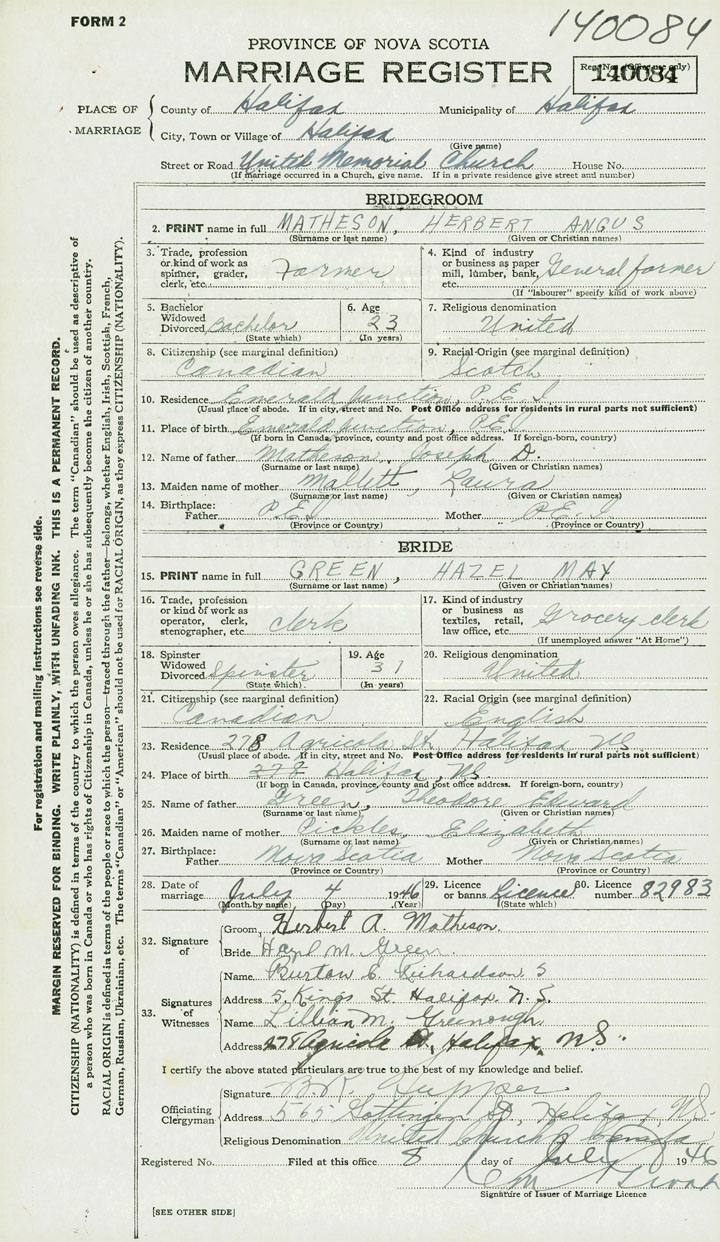 FORM 2
140084
PROVINCE OF NOVA SCOTIA
MARRIAGE REGISTER
Reg. No. (Office use only)
140084
PLACE OF MARRIAGE
County of Halifax Municipality of Halifax
City, Town or Village of Halifax
(Give name)
Street or Road United Memorial Church House No.
(If marriage occurred in a Church, give name. If in a private residence give street and number)
BRIDEGROOM
2. PRINT name in full MATHESON, HERBERT ANGUS
(Surname or last name) (Given or Christian names)
3. Trade, profession or kind of work as spinner, grader, clerk, etc. Farmer
4. Kind of industry or business as paper mill, lumber, bank, etc. General farmer
(If "labourer" specify kind of work above)
5. Bachelor Widowed Divorced Bachelor
(State which)
6. Age 23
(In years)
7. Religious denomination
United
8. Citizenship (see marginal definition)
Canadian
9. Racial Origin (see marginal definition)
Scotch
10. Residence Emerald Junction, P.E.I.
(Usual place of abode. If in city, street and No. Post Office address for residents in rural parts not sufficient)
11. Place of birth Emerald Junction, P.E.I.
(If born in Canada, province, county and post office address. If foreign-born, country)
12. Name of father Matheson, Joseph D.
(Surname or last name) (Given or Christian names)
13. Maiden name of mother Mallett, Laura
(Surname or last name) (Given or Christian names)
14. Birthplace:
Father P.E.I. Mother P.E.I.
(Province or Country) (Province or Country)
BRIDE
15. PRINT name in full GREEN, HAZEL MAY
(Surname or last name) (Given or Christian names)
16. Trade, profession or kind of work as operator, clerk, stenographer, etc. clerk
17. Kind of industry or business as textiles, retail, law office, etc. Grocery clerk
(If unemployed answer "At Home")
18. Spinster Widowed Divorced Spinster
(State which)
19. Age 31
(In years)
20. Religious denomination
United
21. Citizenship (see marginal definition)
Canadian
22. Racial Origin (see marginal definition)
English
23. Residence 278 Agricola St. Halifax NS
(Usual place of abode. If in city, street and No. Post Office address for residents in rural parts not sufficient)
24. Place of birth 278 Halifax, NS.
(If born in Canada, province, county and post office address. If foreign-born, country)
25. Name of father Green, Theodore Edward
(Surname or last name) (Given or Christian names)
26. Maiden name of mother Pickles, Elizabeth
(Surname or last name) (Given or Christian names)
27. Birthplace:
Father Nova Scotia Mother Nova Scotia
(Province or Country) (Province or Country)
28. Date of marriage July 4 1946
(Month by name) (Day) (Year)
29. Licence or banns Licence
(State which)
30. Licence number 82983
32. Signature of
Groom, Herbert A. Matheson.
Bride Hazel M. Green.
33. Signatures of Witnesses
Name Burton C. Richardson
Address 5, Kings St. Halifax. N.S.
Name Lillian M. Greenough
Address 278 Agricola St, Halifax, NS.
I certify the above stated particulars are true to the best of my knowledge and belief.
Officiating Clergyman
Signature
Address 565 Gottingen St, Halifax, NS.
Religious Denomination United Church of Canada
Registered No. Filed at this office 8 day of July 1946
Signature of Issuer of Marriage Licence
[SEE OTHER SIDE]
For registration and mailing instructions see reverse side.
MARGIN RESERVED FOR BINDING. WRITE PLAINLY, WITH UNFADING INK. THIS IS A PERMANENT RECORD.
CITIZENSHIP (NATIONALITY) is defined in terms of the country to which the person owes allegiance. The term "Canadian" should be used as descriptive of
a person who was born in Canada or who has rights of Citizenship in Canada, unless he or she has subsequently become the citizen of another country.
RACIAL ORIGIN is defined in terms of the people or race to which the person—traced through the father—belongs, whether English, Irish, Scottish, French,
German, Russian, Ukrainian, etc. The terms "Canadian" or "American" should not be used for RACIAL ORIGIN, as they express CITIZENSHIP (NATIONALITY).